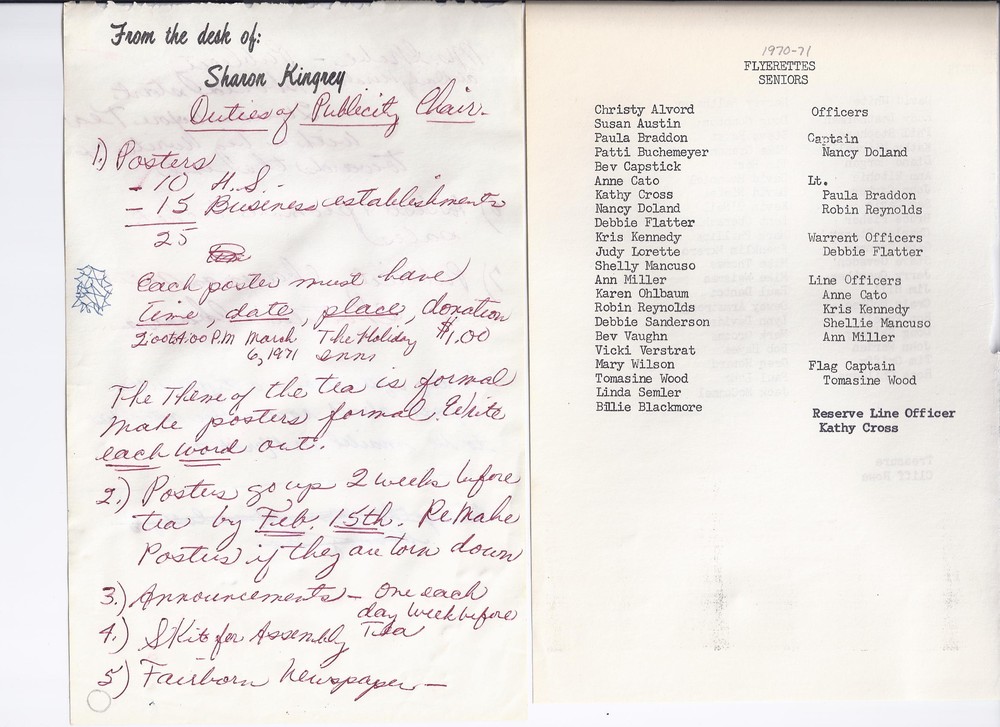 From the desk of:
Sharon Kingrey
Duties of Publicity Chair.
1.) Posters
- 10 H.S. -
- 15 Business establishments
25
Each poster must have
time, date, place, donation
2:00to4:00 P.M March The Holiday $1.00
6, 1971 Inni
The Theme of the tea is formal
Make posters formal. Write
each word out.
2.) Posters go up 2 weeks before
tea by Feb. 15th. ReMake
Posters if they are torn down
3.) Announcements - One each
day week before
4.) Skit for Assembly Tea
5) Fairborn Newspaper -
1970-71
FLYERETTES
SENIORS
Christy Alvord
Susan Austin
Paula Braddon
Patti Buchemeyer
Bev Capstick
Anne Cato
Kathy Cross
Nancy Doland
Debbie Flatter
Kris Kennedy
Judy Lorette
Shelly Mancuso
Ann Miller
Karen Ohlbaum
Robin Reynolds
Debbie Sanderson
Bev Vaughn
Vicki Verstrat
Mary Wilson
Tomasine Wood
Linda Semler
Billie Blackmore
Officers
Captain
Nancy Doland
Lt.
Paula Braddon
Robin Reynolds
Warrent Officers
Debbie Flatter
Line Officers
Anne Cato
Kris Kennedy
Shellie Mancuso
Ann Miller
Flag Captain
Tomasine Wood
Reserve Line Officer
Kathy Cross